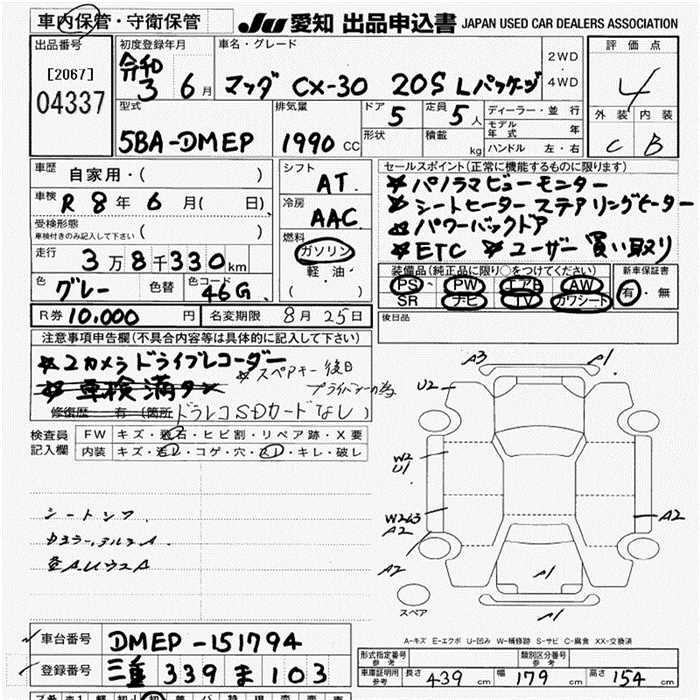 車内保管・守衛保管
JU 愛知 出品申込書 JAPAN USED CAR DEALERS ASSOCIATION
出品番号
[2067]
04337
初度登録年月
令和 3 6月
車名・グレード
マツダ CX-30 20S Lパッケージ
2WD
4WD
評価点
4
外装 内装
C B
型式
5BA-DMEP
排気量
1990 CC
ドア 5
形状
定員 5人
積載 kg
ディーラー・並行
モデル年式 年
ハンドル 左・右
車歴
自家用・( )
車検 R 8年 6月( 日)
受検形態
車検付きのみ記入して下さい ( )
走行 3万8千330km
色 グレー 色替 色コード 46G
シフト
AT
冷房
AAC
燃料
ガソリン
軽油・
( )
セールスポイント(正常に機能するものに限ります)
☆パノラマビューモニター
☆シートヒーター ステアリングヒーター
☆パワーバックドア
☆ETC ☆ユーザー買い取り
装備品(純正品に限り○をつけてください)
PS PW エアB AW
SR ナビ TV カワシート
新車保証書
有・無
R券 10,000円 名変期限 8月25日
後日品
注意事項申告欄(不具合内容等は具体的に記入して下さい)
☆2カメラドライブレコーダー
☆車検満タン
☆スペアキー後日
プライバシーの為
修復歴 有 (箇所 ドラレコSDカードなし)
検査員記入欄
FW キズ・飛石・ヒビ割・リペア跡・X要
内装 キズ・汚レ・コゲ・穴・スレ・キレ・破レ
シートシワ.
A3
A1
U2
W2
U1
W2G3
A2
A2
A2
A1
A1
スペア
A-キズ E-エクボ U-凹み W-補修跡 S-サビ C-腐食 XX-交換済
車台番号 DMEP-151794
登録番号 三重 339 ま 103
形式指定番号 参考
類別区分番号 参考
車庫証明用 参考 長さ 439 cm 幅 179 cm 高さ 154 cm